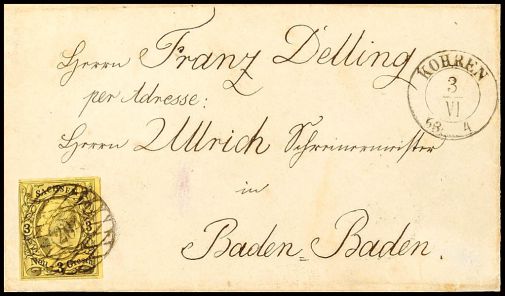 Herrn Franz Delling
per Adresse:
Herrn Ullrich Schreinermeister
in
Baden-Baden.
KOHREN
3
VI
63 4
SACHSEN
3 3
Neu 3 Grosch.